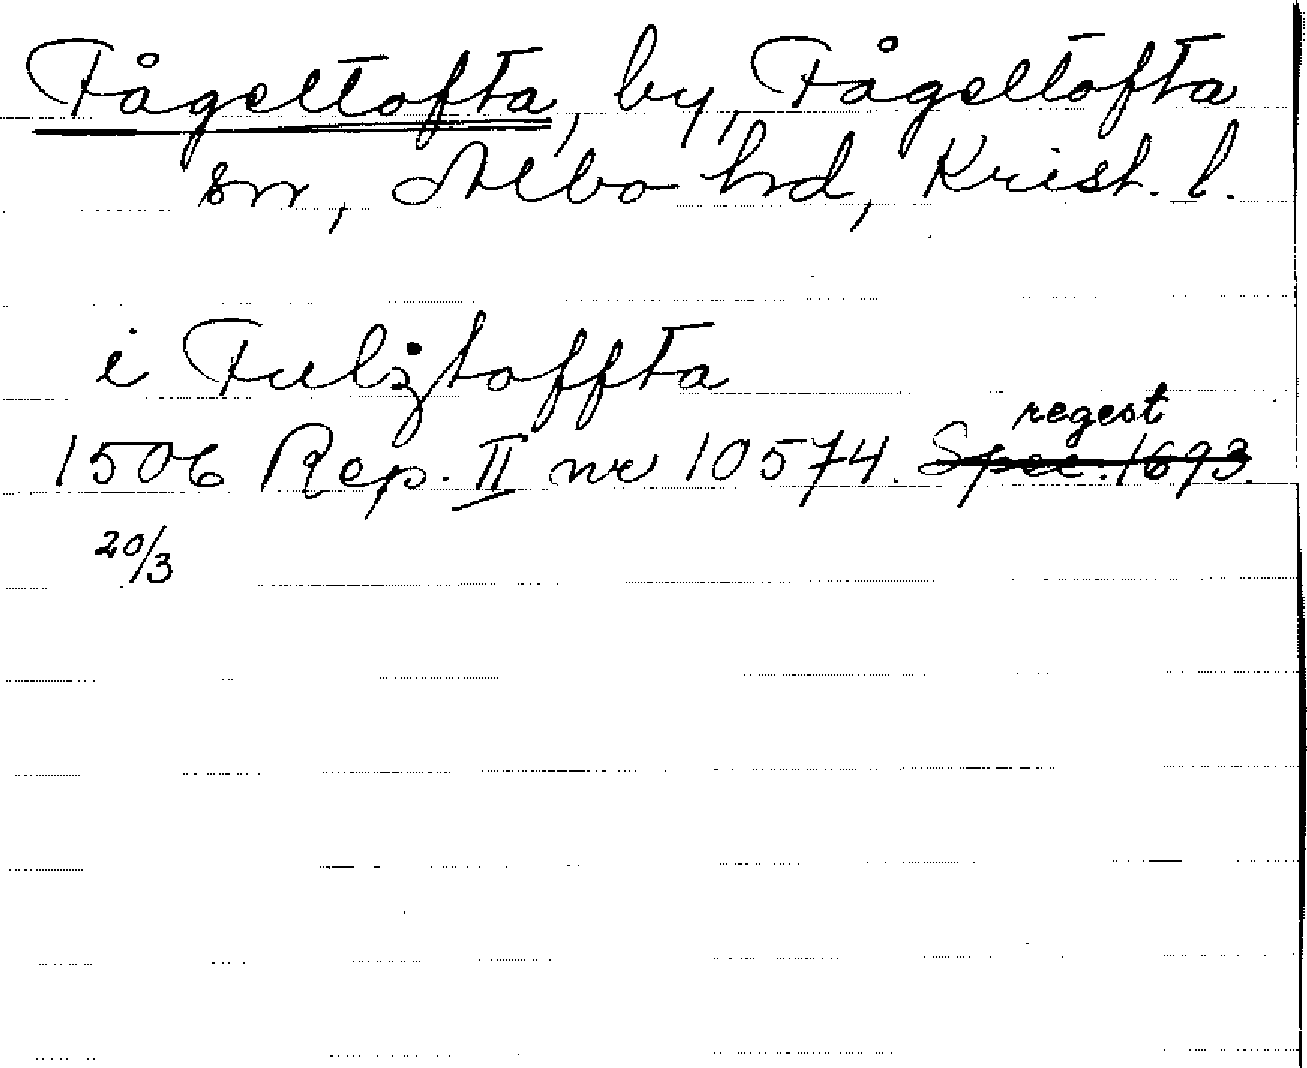 Fågeltofta, by, Fågeltofta
sn, Albo hd, Krist. l.
i Fulztoffta
regest
1506 Rep. II nr 10574. Spec. 1693.
20/3